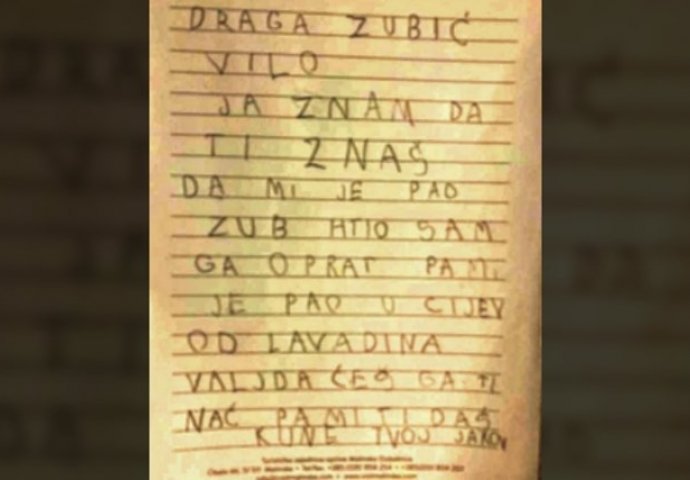 DRAGA ZUBIĆ
VILO
JA ZNAM DA
TI ZNAŠ
DA MI JE PAO
ZUB HTIO SAM
GA OPRAT PA MI
JE PAO U CIJEV
OD LAVADINA
VALJDA ĆEŠ GA TI
NAĆ PA MI TI DAŠ
KUNE TVOJ JAKOV